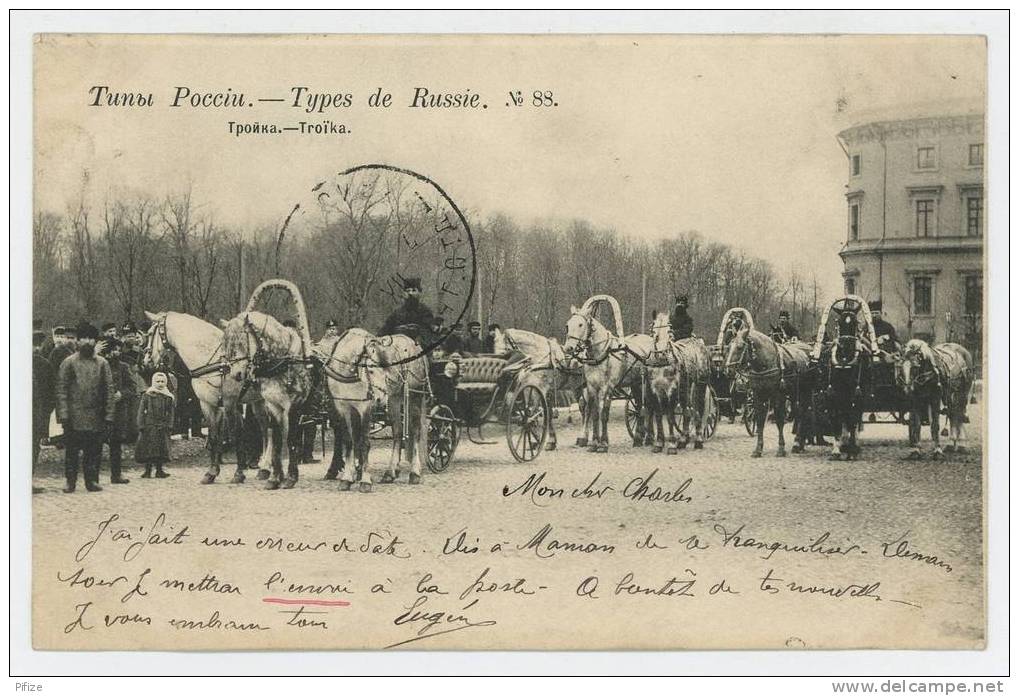 Типы Россіи.—Types de Russie. № 88.
Тройка.—Troïka.
Mon cher Charles
J'ai fait une erreur de date. Dis à Maman de se tranquiliser - Demain
soir Je mettrai l'envoi à la poste - A bientôt de tes nouvelles -
Je vous embrasse tous Eugén
© Pfize
www.delcampe.net